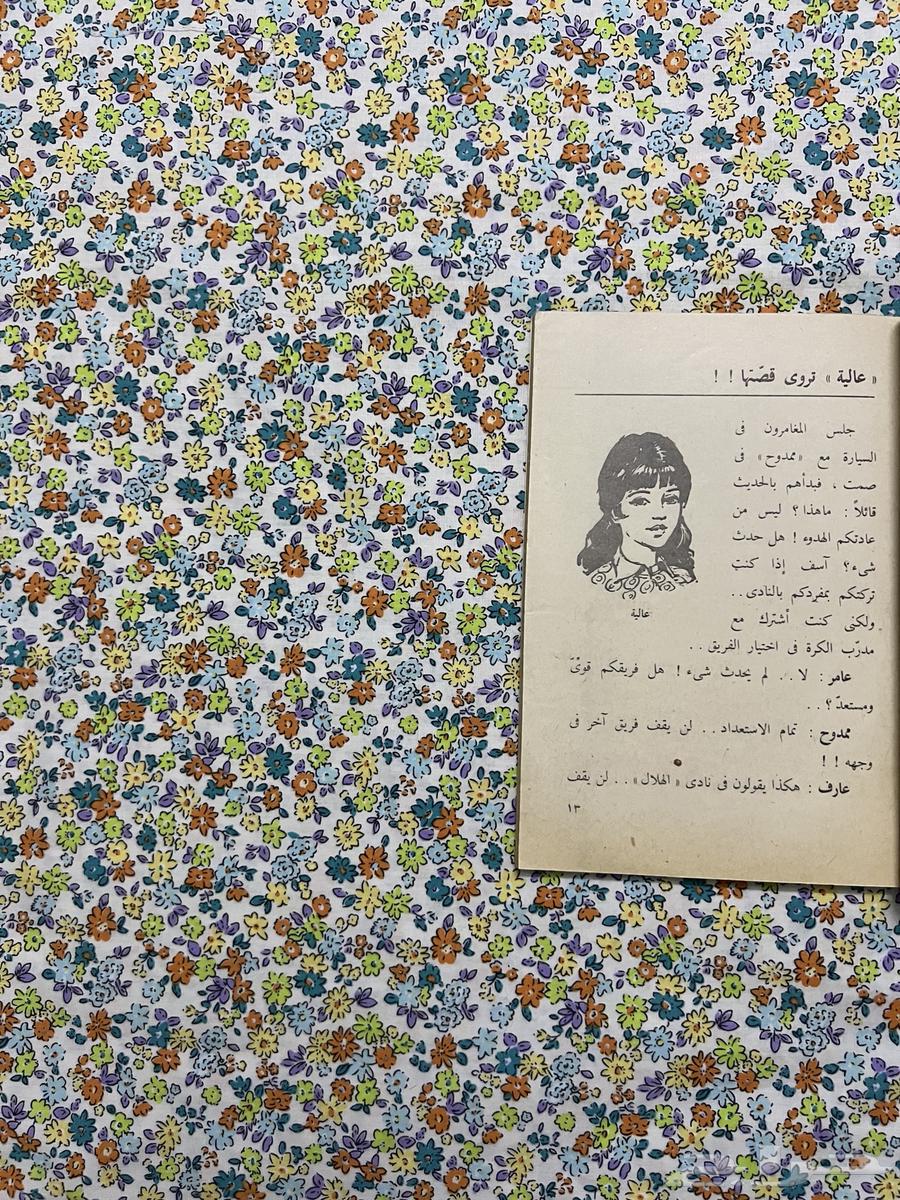 « عالية » تروى قصّتها ! !
جلس المغامرون فى
السيارة مع « ممدوح » فى
صمت ، فبدأهم بالحديث
قائلاً : ماهذا ؟ ليس من
عادتكم الهدوء ! هل حدث
شىء ؟ آسف إذا كنت
تركتكم بمفردكم بالنادى . .
ولكنى كنت أشترك مع
عالية
مدرّب الكرة فى اختبار الفريق . .
عامر : لا . . لم يحدث شىء ! هل فريقكم قوىّ
ومستعدّ ؟ . .
ممدوح : تمام الاستعداد . . لن يقف فريق آخر فى
وجهه ! !
عارف : هكذا يقولون فى نادى « الهلال » . . لن يقف
١٣